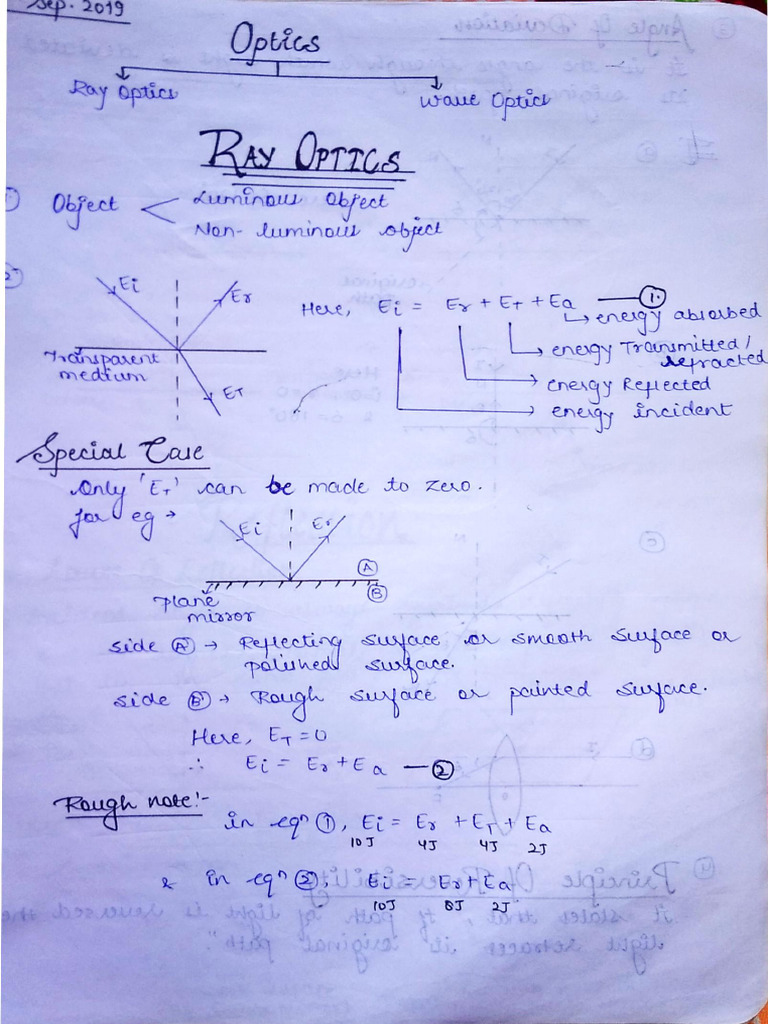 Sep. 2019
Optics
Ray Optics
Wave Optics
RAY OPTICS
1. Object
Luminous Object
Non-luminous object
2.
Ei
Er
ET
Transparent
medium
Here, Ei = Er + ET + Ea — 1.
energy absorbed
energy Transmitted /
refracted
energy Reflected
energy incident
Special Case
Only 'ET' can be made to zero.
for eg →
Ei
Er
A
B
Plane
mirror
side A → Reflecting surface or smooth surface or
polished surface.
side B → Rough surface or painted surface.
Here, ET = 0
∴ Ei = Er + Ea — 2
Rough note:-
in eqn 1, Ei = Er + ET + Ea
10J 4J 4J 2J
& in eqn 2, Ei = Er + Ea
10J 8J 2J